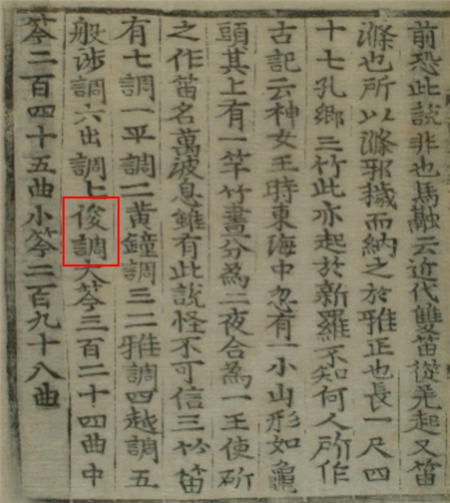 前恐此說非也馬融云近代雙笛從羌起又笛
滌也所以滌邪穢而納之於雅正也長一尺四
十七孔鄉三竹此亦起於新羅不知何人所作
古記云神文王時東海中忽有一小山形如龜
頭其上有一竿竹晝分為二夜合為一王使斫
之作笛名萬波息雖有此說怪不可信三竹笛
有七調一平調二黃鐘調三二雅調四越調五
般涉調六出調七俊調大笒三百二十四曲中
笒二百四十五曲小笒二百九十八曲